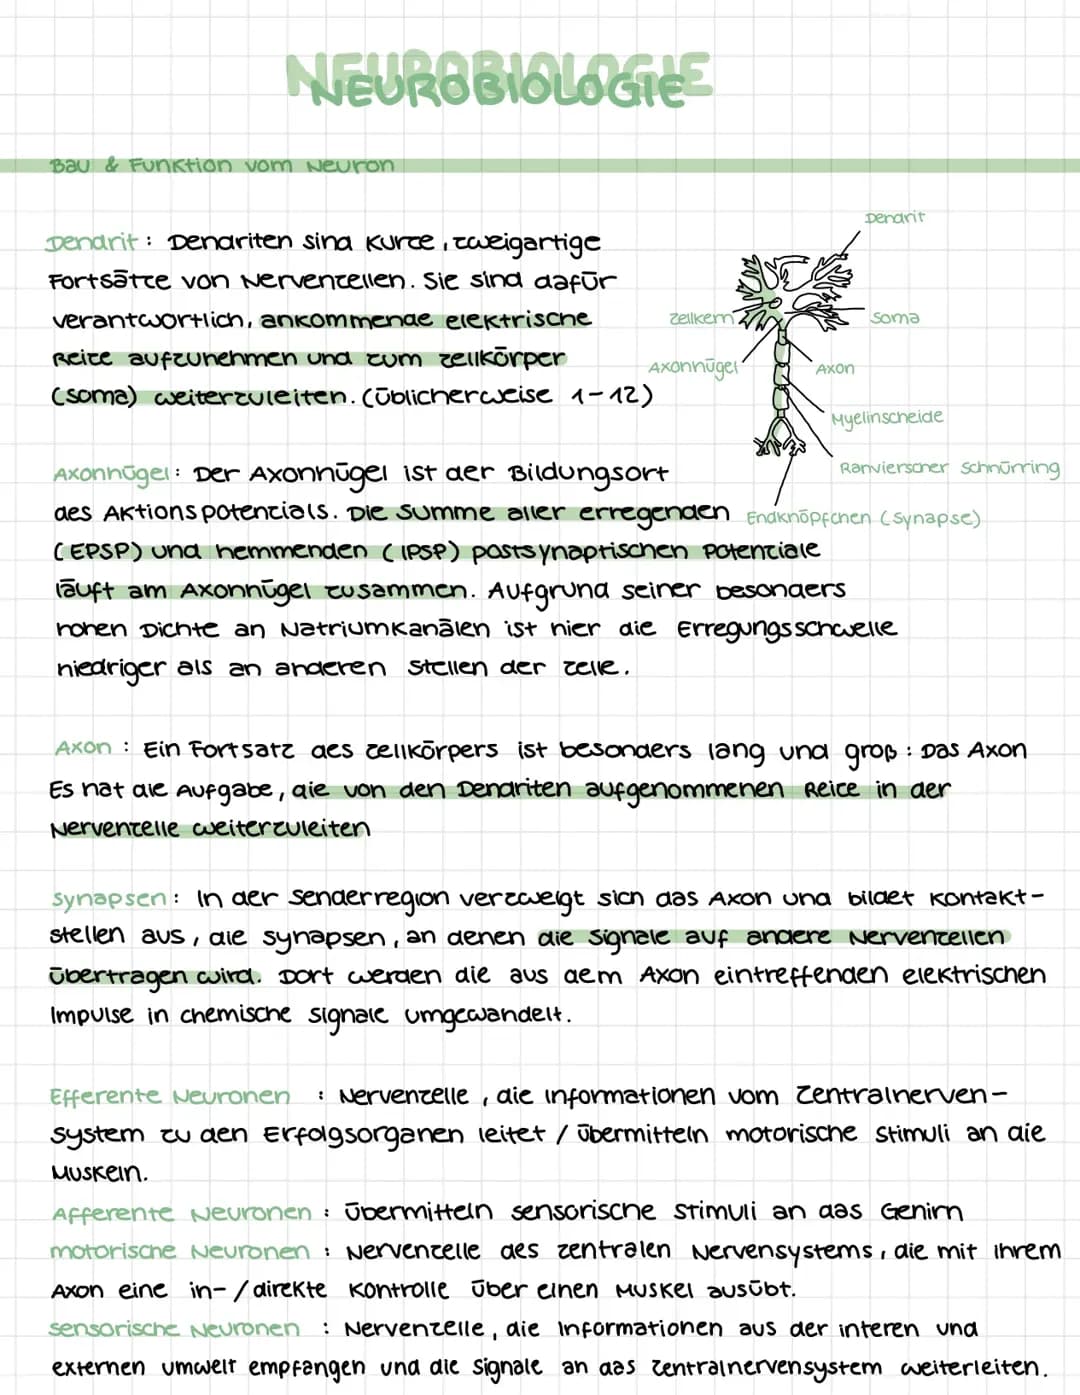 NEUROBIOLOGIE
Bau & Funktion vom Neuron
Dendrit
Dendrit : Dendriten sind kurze, zweigartige
Fortsätze von Nervenzellen. Sie sind dafür
verantwortlich, ankommende elektrische
Zellkern
Soma
Reize aufzunehmen und zum Zellkörper
Axonhügel
Axon
(Soma) weiterzuleiten. (üblicherweise 1-12)
Myelinscheide
Axonhügel: Der Axonhügel ist der Bildungsort
Ranvierscher Schnürring
des Aktionspotenzials. Die Summe aller erregenden
Endknöpfchen (Synapse)
(EPSP) und hemmenden (IPSP) postsynaptischen Potenziale
läuft am Axonhügel zusammen. Aufgrund seiner besonders
hohen Dichte an Natriumkanälen ist hier die Erregungsschwelle
niedriger als an anderen Stellen der Zelle.
Axon : Ein Fortsatz des Zellkörpers ist besonders lang und groß : Das Axon
Es hat die Aufgabe, die von den Dendriten aufgenommenen Reize in der
Nervenzelle weiterzuleiten
Synapsen : In der Senderregion verzweigt sich das Axon und bildet Kontakt-
stellen aus, die Synapsen, an denen die Signale auf andere Nervenzellen
übertragen wird. Dort werden die aus dem Axon eintreffenden elektrischen
Impulse in chemische Signale umgewandelt.
Efferente Neuronen : Nervenzelle, die Informationen vom Zentralnerven-
system zu den Erfolgsorganen leitet / übermitteln motorische Stimuli an die
Muskeln.
Afferente Neuronen : übermitteln sensorische Stimuli an das Gehirn
motorische Neuronen : Nervenzelle des zentralen Nervensystems, die mit ihrem
Axon eine in-/direkte Kontrolle über einen Muskel ausübt.
sensorische Neuronen : Nervenzelle, die Informationen aus der interen und
externen umwelt empfangen und die Signale an das Zentralnervensystem weiterleiten.